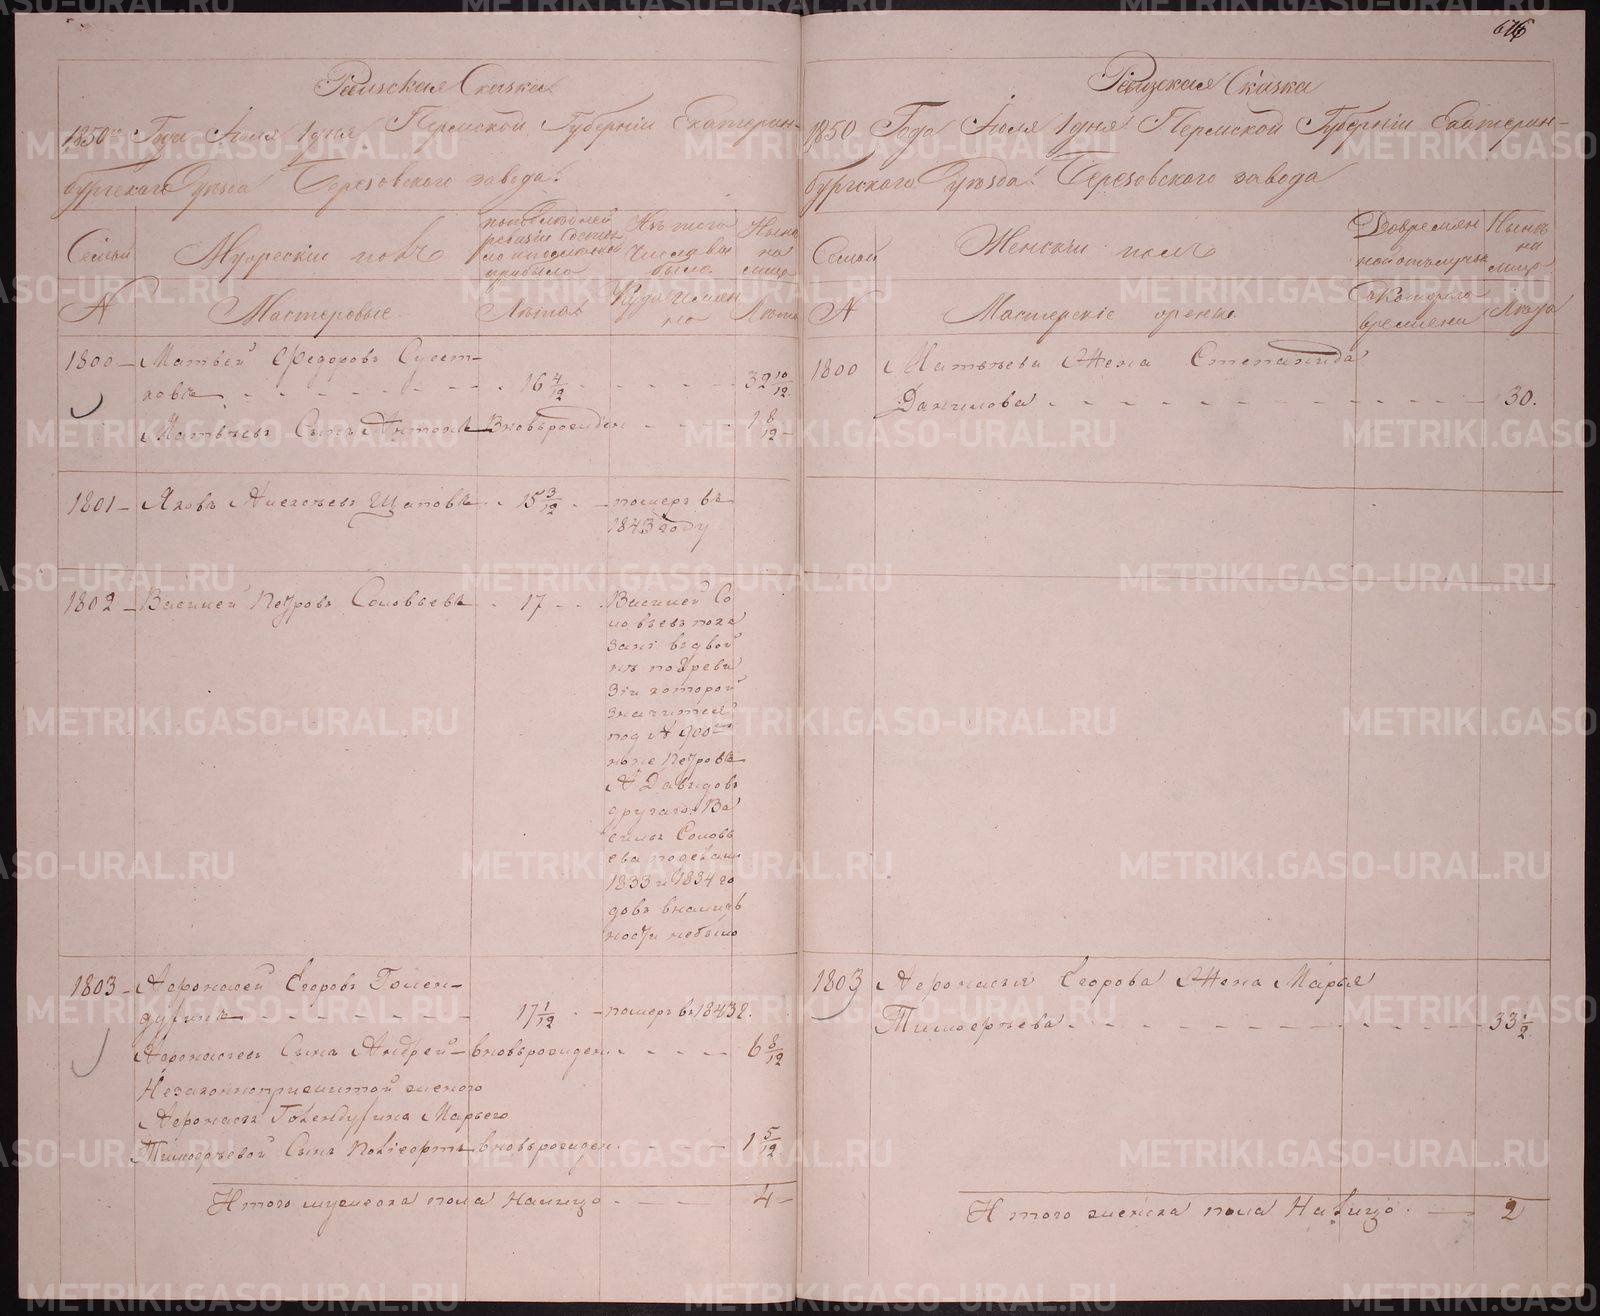 676
Ревизская Сказка
1850го Года Июля 1 дня Пермской Губерніи Екатерин-
бургскаго Уѣзда Березовского завода.
Семьи
Мужескій полъ
По последней
ревизіи состоя
ло и после оной
прибыло
Изъ того
Числа вы
было
Нынѣ
на
лицо
N
Мастеровые
Лѣта
Куда имян
но
Лѣта
1800 – Матвей Федоровъ Суест-
ковъ 16 4/12 32 10/12
Матвеевъ Сынъ Антонъ Вновьрожден 1 8/12
1801 – Яковъ Алексеевъ Щаповъ 15 3/12 померъ въ
1843 году
1802 – Василей Петровъ Соловьевъ 17 Василей Со
ловьевъ пока
занъ въ двой
нѣ по 8 реви
зіи которой
значится
под N 900
ныне Петровъ
А Давыдовъ
другаго Ва
силья Соловь
ева по
1833 и 1834 го
довъ вналич
ности небыло
1803 – Афонасей Егоровъ Голен-
дугинъ 17 1/12 померъ въ 1843 г.
Афонасьевъ Сынъ Андрей – вновьрожден 6 8/12
Незаконноприжитой женою
Афонасья Голендугина Марьею
Тимофеевой Сынъ вновьрожден 1 5/12
Итого мужеска пола Налицо 4
Ревизская Сказка
1850 Года Июля 1 дня Пермской Губерніи Екатерин-
бургского Уѣзда Березовского завода
Семьи
Женскій полъ
Вовремян
ной отлучке
Нынѣ
на
лицо
N
Мастерскіе женки
Скотораго
времяни
Лѣта
1800 Матвеева Жена Степанида
Данилова 30.
1803 Афонасья Егорова Жена Марья
Тимофеева 33 1/2
Итого женска пола Налицо 2
METRIKI.GASO-URAL.RU